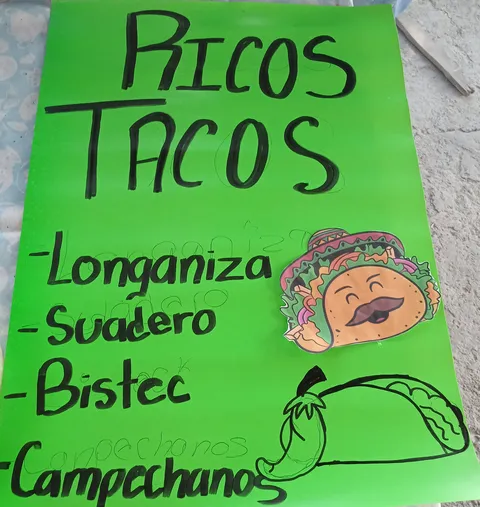 RICOS
TACOS
-Longaniza
-Suadero
-Bistec
-Campechanos